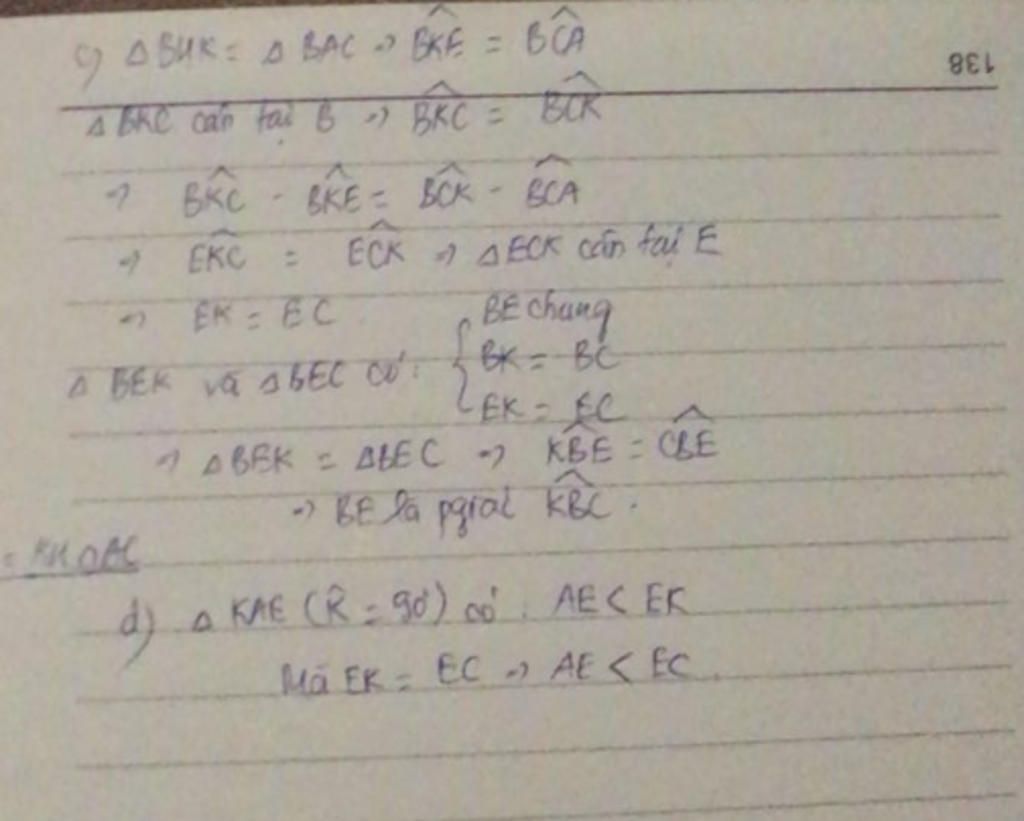 c) △BHK = △BAC → \widehat{BKE} = \widehat{BCA}
138
△BKC cân tại B → \widehat{BKC} = \widehat{BCK}
→ \widehat{BKC} - \widehat{BKE} = \widehat{BCK} - \widehat{BCA}
→ \widehat{EKC} = \widehat{ECK} → △ECK cân tại E
→ EK = EC
△BEK và △BEC có: { BE chung
BK = BC
EK = EC
→ △BEK = △BEC → \widehat{KBE} = \widehat{CBE}
→ BE là pgiác \widehat{KBC}.
d) △KAE (\widehat{R} = 90°) có: AE < EK
Mà EK = EC → AE < EC.